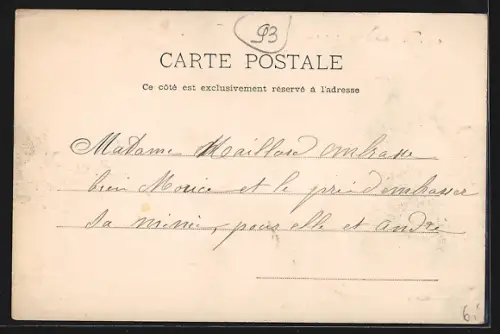 93
CARTE POSTALE
Ce côté est exclusivement réservé à l'adresse
Madame Maillard embrasse
bien Morice et le prie d'embrasser
sa mimie, pour elle et André